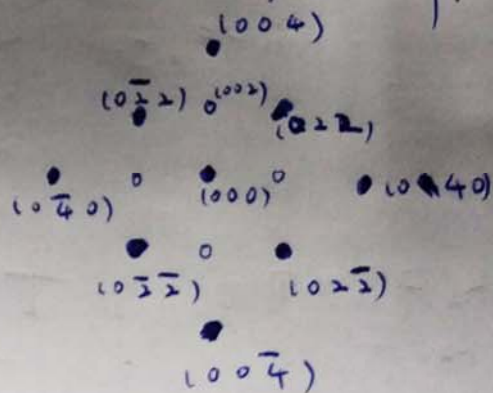 (004)
(02̅2) (002)
(022)
(04̅0) (000) (040)
(02̅2̅) (022̅)
(004̅)